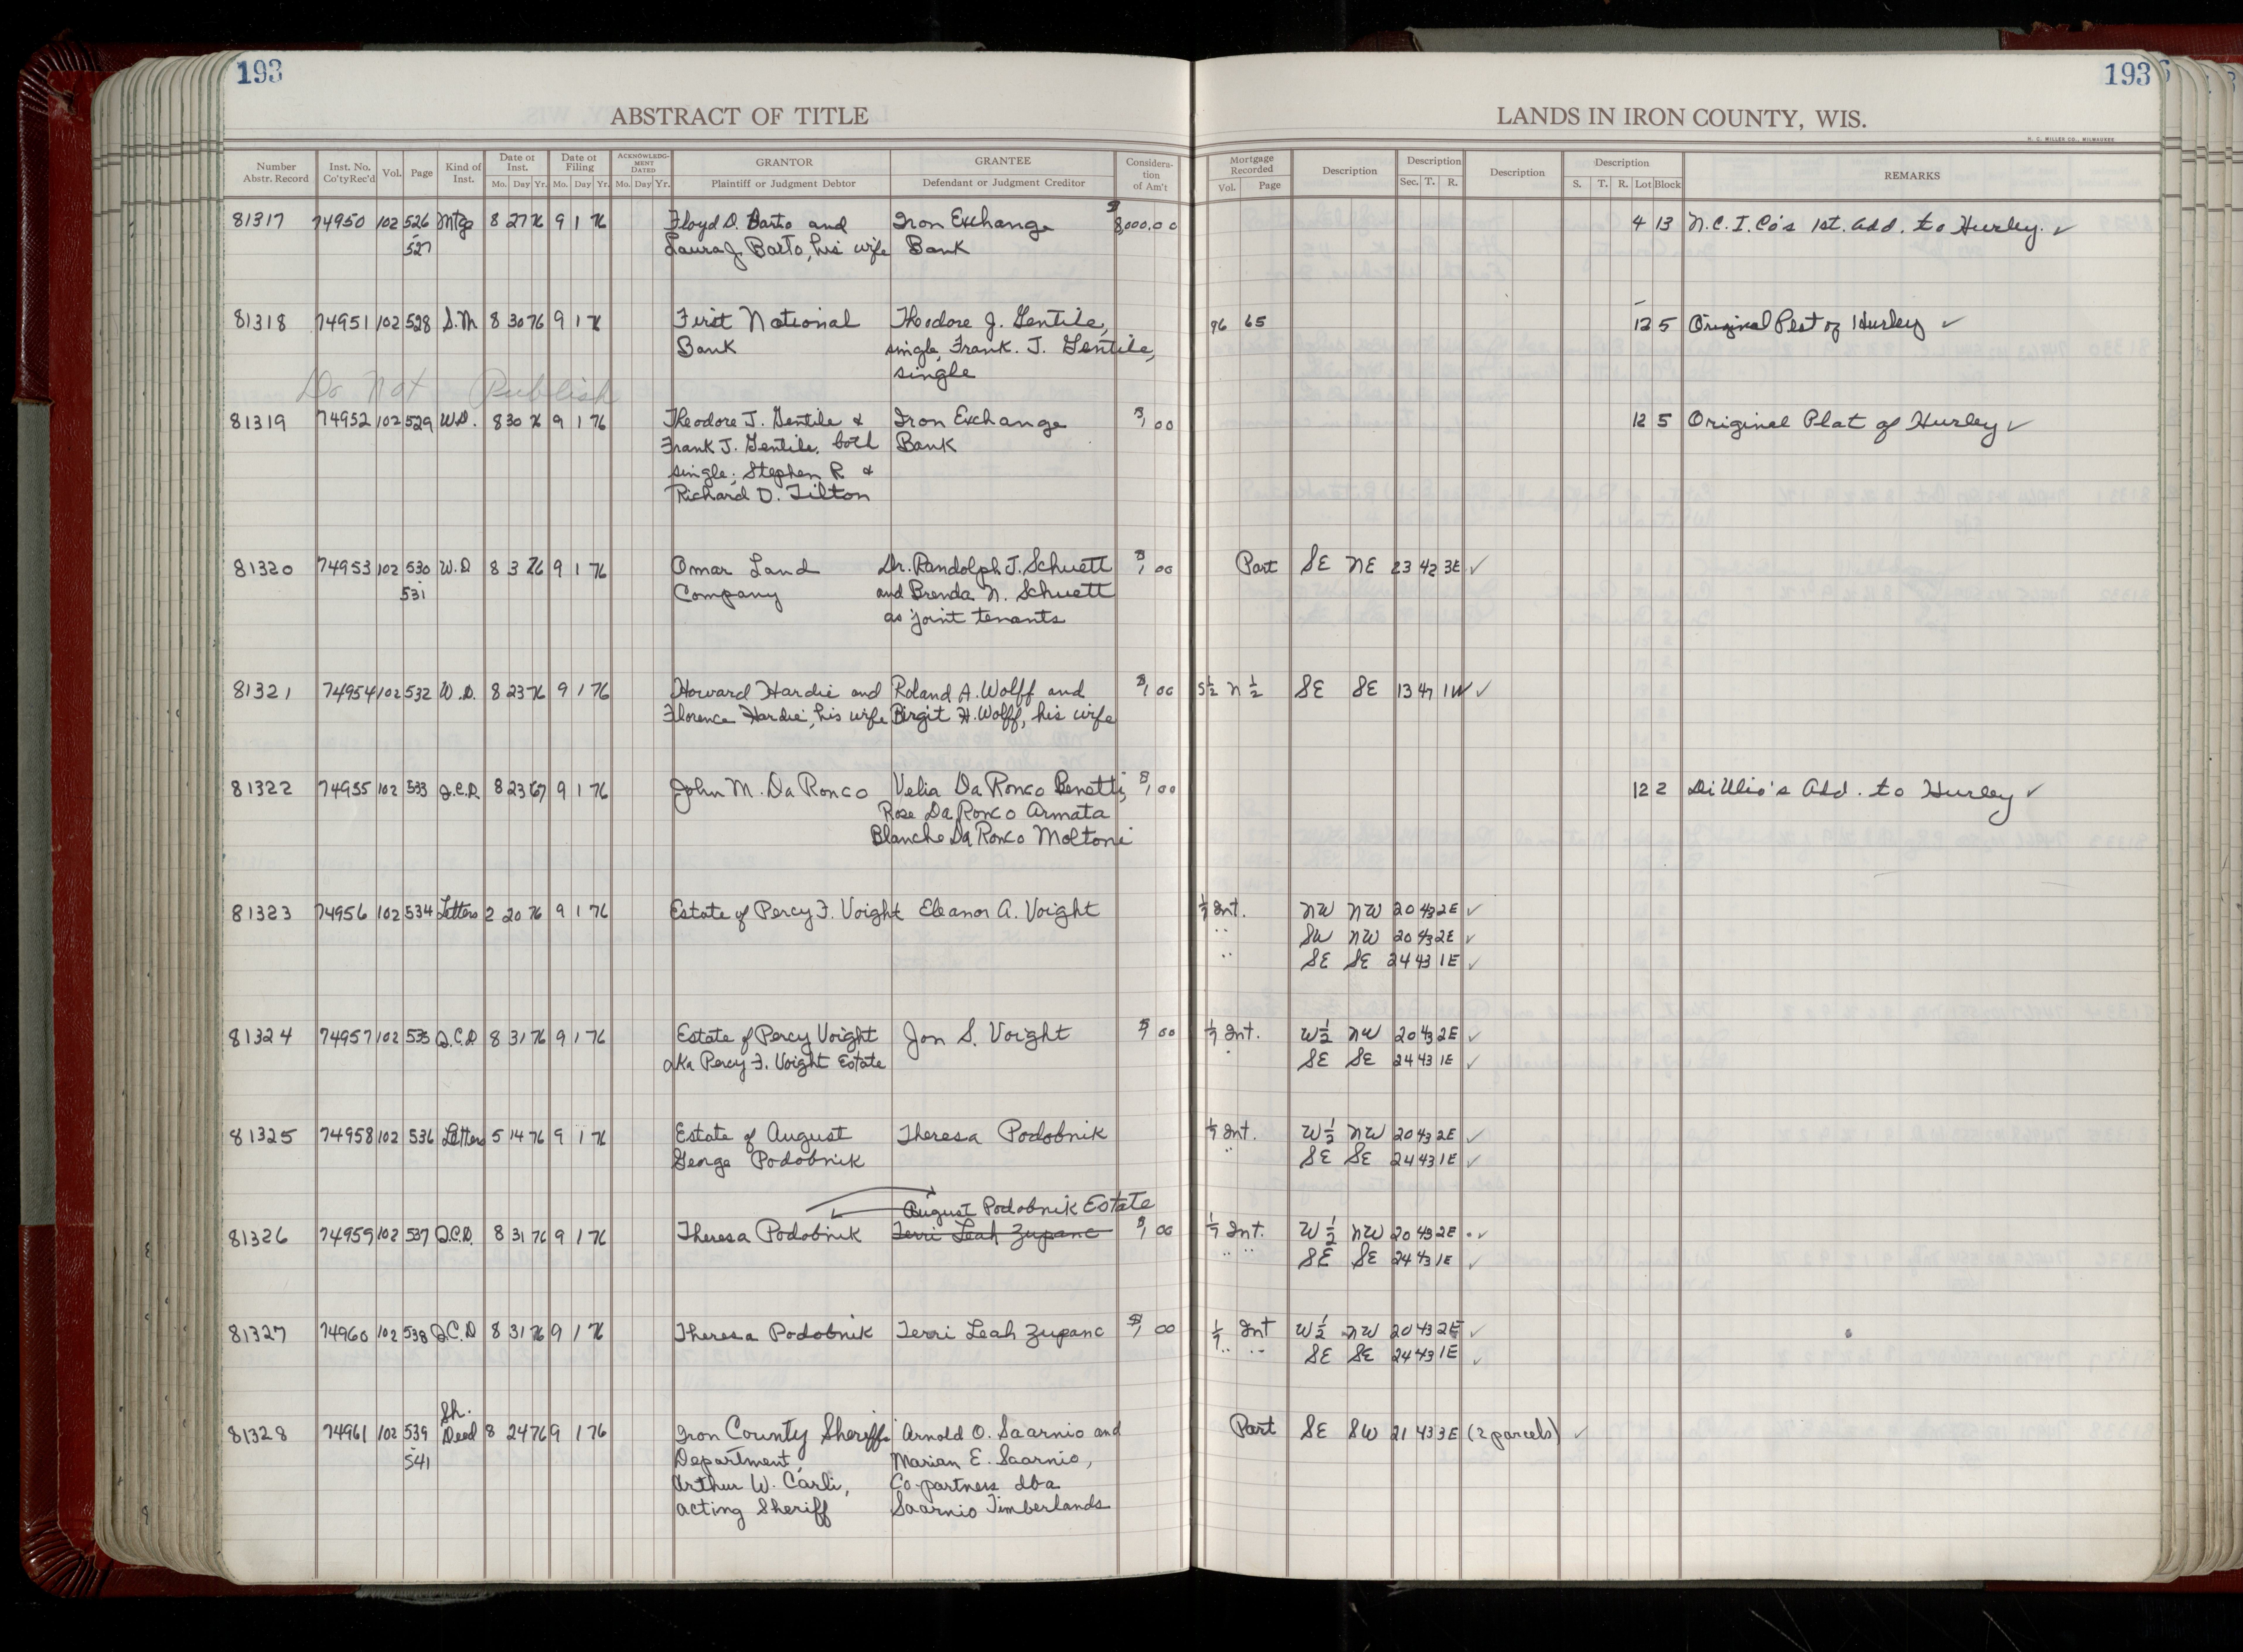 193
193
ABSTRACT OF TITLE
LANDS IN IRON COUNTY, WIS.
H. C. MILLER CO., MILWAUKEE
Number Abstr. Record | Inst. No. Co'ty Rec'd | Vol. | Page | Kind of Inst. | Date of Inst. Mo. Day Yr. | Date of Filing Mo. Day Yr. | ACKNOWLEDGMENT DATED Mo. Day Yr. | GRANTOR Plaintiff or Judgment Debtor | GRANTEE Defendant or Judgment Creditor | Consideration of Am't | Mortgage Recorded Vol. Page | Description | Description Sec. T. R. | Description | Description S. T. R. Lot Block | REMARKS
81317 74950 102 526 Mtge 8 27 76 9 1 76 Floyd D. Barto and Iron Exchange $8,000.00 4 13 N.C.I.Co's 1st. Add. to Hurley. ✓
- 527 Laura J. Barto, his wife Bank
81318 74951 102 528 S.M 8 30 76 9 1 76 First National Theodore J. Gentile, 96 65 12 5 Original Plat of Hurley ✓
Bank single, Frank. J. Gentile,
single
Do Not Publish
81319 74952 102 529 W.D. 8 30 76 9 1 76 Theodore J. Gentile & Iron Exchange $1,00 12 5 Original Plat of Hurley ✓
Frank J. Gentile, both Bank
single; Stephen R. &
Richard D. Tilton
81320 74953 102 530 W.D 8 3 76 9 1 76 Omar Land Dr. Randolph J. Schuett $1,00 Part SE NE 23 42 3E ✓
- 531 Company and Brenda N. Schuett
as joint tenants
81321 74954 102 532 W.D. 8 23 76 9 1 76 Howard Hardie and Roland A. Wolff and $1,00 S½ N½ SE SE 13 47 1W ✓
Florence Hardie, his wife Birgit H. Wolff, his wife
81322 74955 102 533 Q.C.D. 8 23 67 9 1 76 John M. Da Ronco Velia Da Ronco Benetti, $1,00 12 2 Di Ulio's Add. to Hurley ✓
Rose Da Ronco Armata
Blanche Da Ronco Moltoni
81323 74956 102 534 Letters 2 20 76 9 1 76 Estate of Percy F. Voight Eleanor A. Voight 1/7 Int. NW NW 20 43 2E ✓
" SW NW 20 43 2E ✓
" SE SE 24 43 1E ✓
81324 74957 102 535 Q.C.D 8 31 76 9 1 76 Estate of Percy Voight Jon S. Voight $1,00 1/7 Int. W½ NW 20 43 2E ✓
aka Percy F. Voight Estate " SE SE 24 43 1E ✓
81325 74958 102 536 Letters 5 14 76 9 1 76 Estate of August Theresa Podobnik 1/7 Int. W½ NW 20 43 2E ✓
George Podobnik " SE SE 24 43 1E ✓
August Podobnik Estate
81326 74959 102 537 Q.C.D. 8 31 76 9 1 76 Theresa Podobnik Terri Leah Zupanc $1,00 1/7 Int. W½ NW 20 43 2E ✓
" " SE SE 24 43 1E ✓
81327 74960 102 538 Q.C.D 8 31 76 9 1 76 Theresa Podobnik Terri Leah Zupanc $1,00 1/7 Int W½ NW 20 43 2E ✓
" " SE SE 24 43 1E ✓
Sh.
81328 74961 102 539 Deed 8 24 76 9 1 76 Iron County Sheriffs Arnold O. Saarnio and Part SE SW 21 43 3E (2 parcels) ✓
- 541 Department, Marian E. Saarnio,
Arthur W. Carli, Co-partners dba
acting Sheriff Saarnio Timberlands